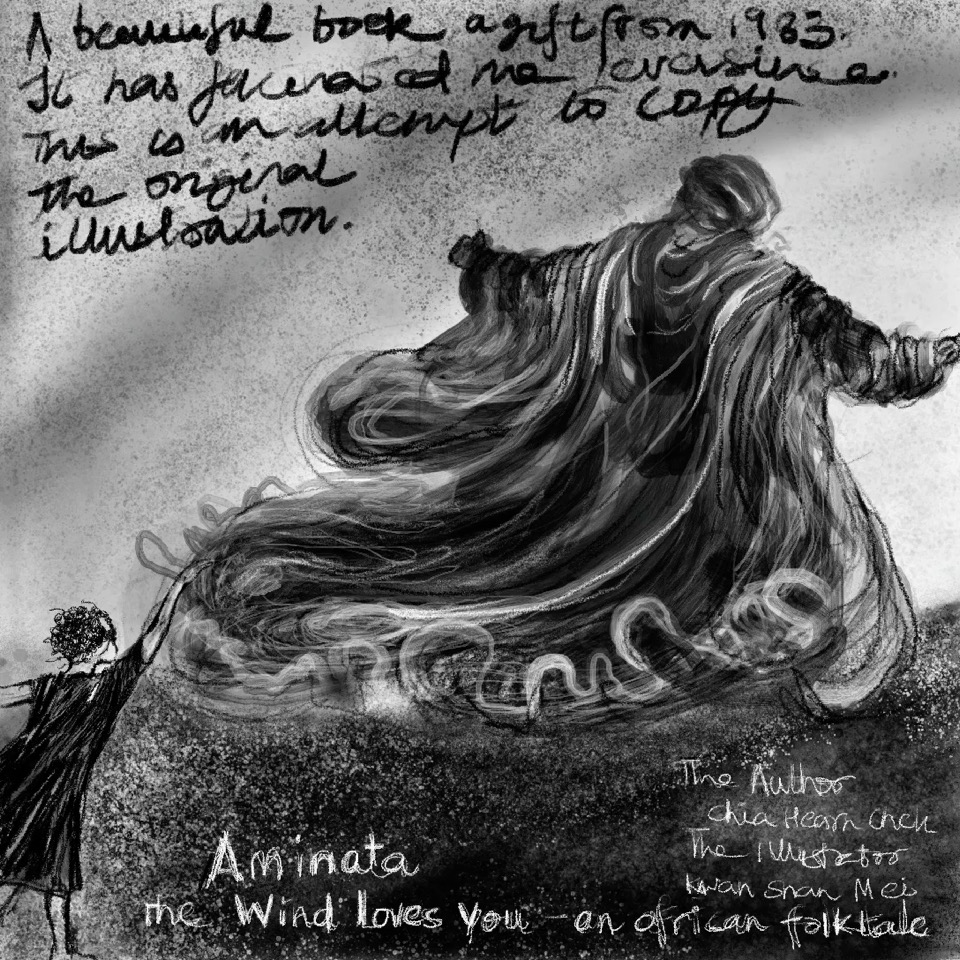 A beautiful book a gift from 1983.
It has fascinated me eversince.
This is an attempt to copy
the original
illustration.
The Author
Chia Hearn Chek
The Illustrator
Kwan Shan Mei
Aminata
the Wind loves you - an african folktale